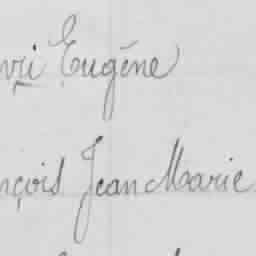 nri Eugène
nçois Jean Marie